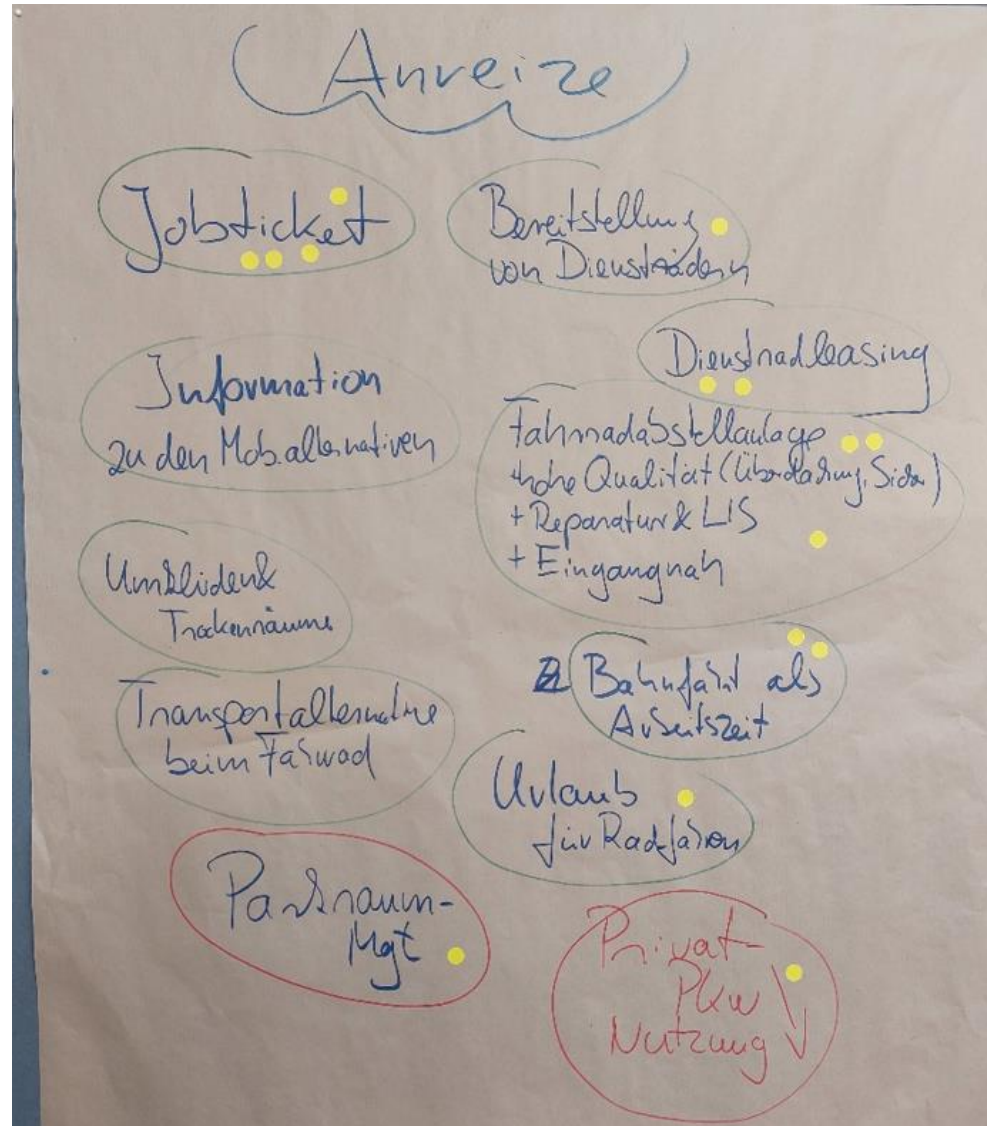 Anreize
Jobticket
Bereitstellung
von Diensträdern
Dienstradleasing
Information
zu den Mob.alternativen
Fahrradabstellanlage
+hohe Qualität (Überdachung, Sicher)
+ Reparatur & LIS
+ Eingangnah
Umkleiden &
Trockenräume
Bahnfahrt als
Arbeitszeit
Transportalternative
beim Fahrrad
Urlaub
für Radfahren
Parkraum-
Mgt
Privat-
Pkw
Nutzung